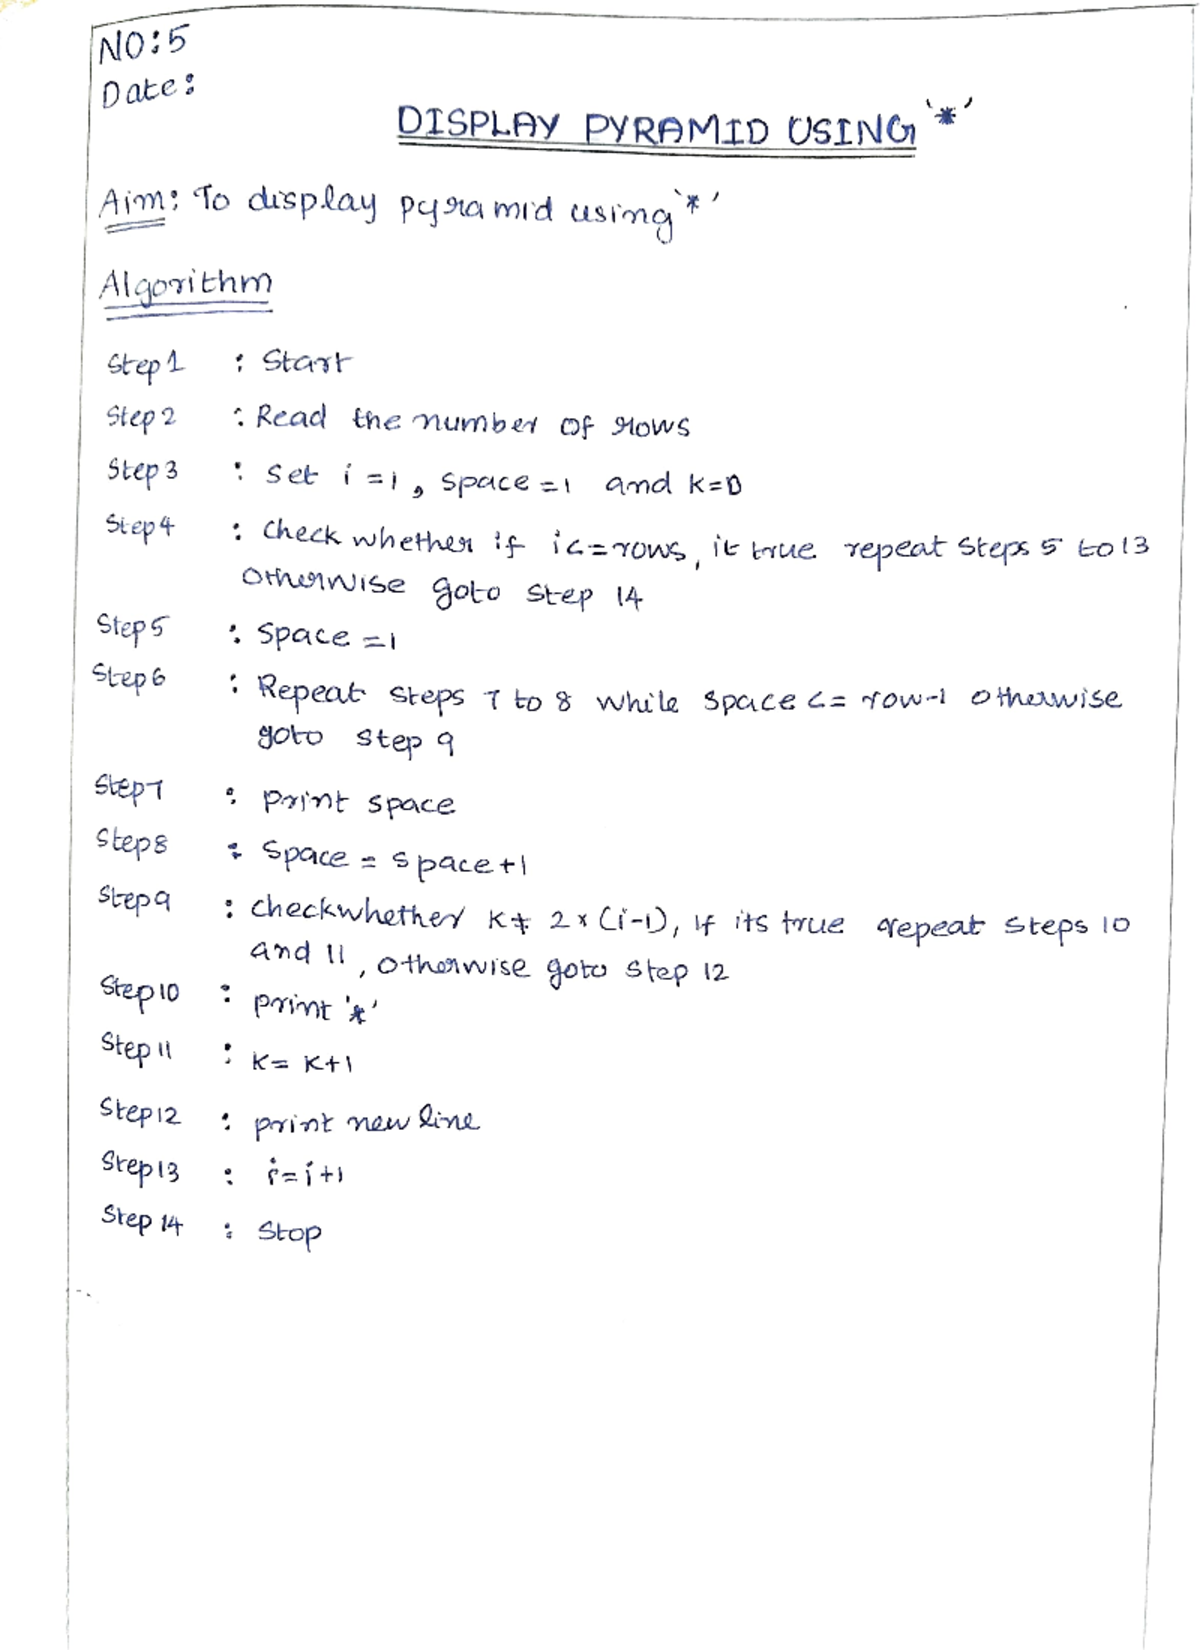 NO:5
Date:
DISPLAY PYRAMID USING '*'
Aim: To display pyramid using '*'
Algorithm
Step 1 : Start
Step 2 : Read the number of rows
Step 3 : Set i=1, space=1 and k=0
Step 4 : Check whether if i<=rows, it true repeat Steps 5 to 13
otherwise goto step 14
Step 5 : Space=1
Step 6 : Repeat steps 7 to 8 while space <= row-1 otherwise
goto step 9
Step 7 : print space
Step 8 : Space = space+1
Step 9 : checkwhether k≠ 2*(i-1), if its true repeat steps 10
and 11, otherwise goto step 12
Step 10 : print '*'
Step 11 : k= k+1
Step 12 : print new line
Step 13 : i=i+1
Step 14 : Stop